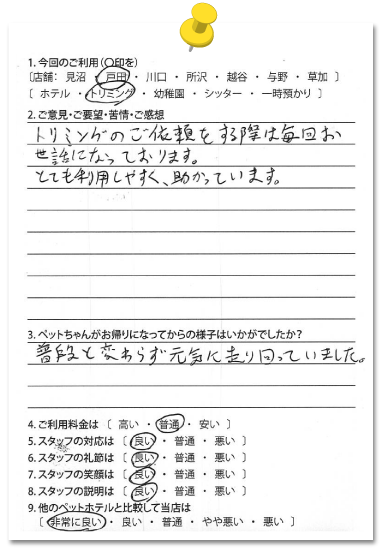 1. 今回のご利用(〇印を)
〔店舗: 見沼 ・ 戸田 ・ 川口 ・ 所沢 ・ 越谷 ・ 与野 ・ 草加 〕
〔 ホテル ・ トリミング ・ 幼稚園 ・ シッター ・ 一時預かり 〕
2. ご意見・ご要望・苦情・ご感想
トリミングのご依頼をする際は毎回お
世話になっております。
とても利用しやすく、助かっています。
3. ペットちゃんがお帰りになってからの様子はいかがでしたか?
普段と変わらず元気に走り回っていました。
4. ご利用料金は 〔 高い ・ 普通 ・ 安い 〕
5. スタッフの対応は 〔 良い ・ 普通 ・ 悪い 〕
6. スタッフの礼節は 〔 良い ・ 普通 ・ 悪い 〕
7. スタッフの笑顔は 〔 良い ・ 普通 ・ 悪い 〕
8. スタッフの説明は 〔 良い ・ 普通 ・ 悪い 〕
9. 他のペットホテルと比較して当店は
〔 非常に良い ・ 良い ・ 普通 ・ やや悪い ・ 悪い 〕